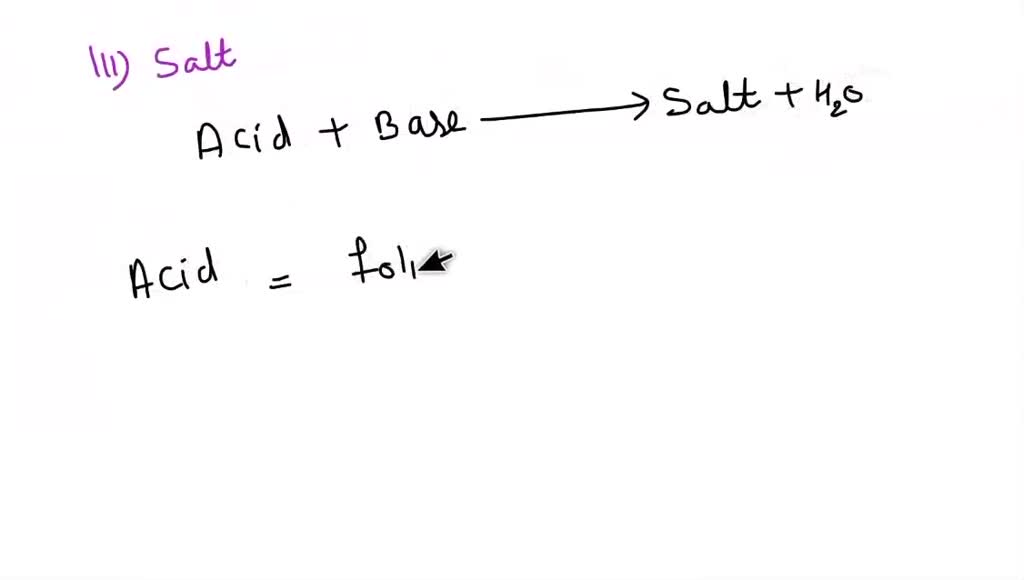 III) Salt
Acid + Base ⟶ Salt + H₂O
Acid = foli